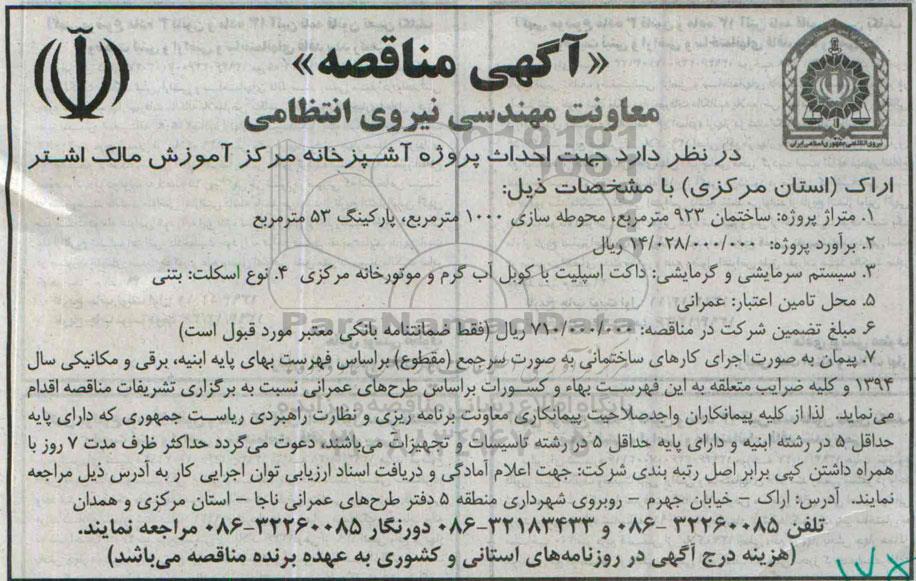 «آگهی مناقصه»
معاونت مهندسی نیروی انتظامی
نیروی انتظامی جمهوری اسلامی ایران
در نظر دارد جهت احداث پروژه آشپزخانه مرکز آموزش مالک اشتر
اراک (استان مرکزی) با مشخصات ذیل:
۱. متراژ پروژه: ساختمان ۹۲۳ مترمربع، محوطه سازی ۱۰۰۰ مترمربع، پارکینگ ۵۳ مترمربع
۲. برآورد پروژه: ۱۴/۰۲۸/۰۰۰/۰۰۰ ریال
۳. سیستم سرمایشی و گرمایشی: داکت اسپلیت با کویل آب گرم و موتورخانه مرکزی ۴. نوع اسکلت: بتنی
۵. محل تامین اعتبار: عمرانی
۶. مبلغ تضمین شرکت در مناقصه: ۷۱۰/۰۰۰/۰۰۰ ریال (فقط ضمانتنامه بانکی معتبر مورد قبول است)
۷. پیمان به صورت اجرای کارهای ساختمانی به صورت سرجمع (مقطوع) براساس فهرست بهای پایه ابنیه، برقی و مکانیکی سال
۱۳۹۴ و کلیه ضرایب متعلقه به این فهرست بهاء و کسورات براساس طرح‌های عمرانی نسبت به برگزاری تشریفات مناقصه اقدام
می‌نماید. لذا از کلیه پیمانکاران واجدصلاحیت پیمانکاری معاونت برنامه ریزی و نظارت راهبردی ریاست جمهوری که دارای پایه
حداقل ۵ در رشته ابنیه و دارای پایه حداقل ۵ در رشته تاسیسات و تجهیزات می‌باشند، دعوت می‌گردد حداکثر ظرف مدت ۷ روز با
همراه داشتن کپی برابر اصل رتبه بندی شرکت: جهت اعلام آمادگی و دریافت اسناد ارزیابی توان اجرایی کار به آدرس ذیل مراجعه
نمایند. آدرس: اراک – خیابان جهرم – روبروی شهرداری منطقه ۵ دفتر طرح‌های عمرانی ناجا – استان مرکزی و همدان
تلفن ۳۲۲۶۰۰۸۵ –۰۸۶ و ۳۲۱۸۳۴۳۳–۰۸۶ دورنگار ۳۲۲۶۰۰۸۵–۰۸۶ مراجعه نمایند.
(هزینه درج آگهی در روزنامه‌های استانی و کشوری به عهده برنده مناقصه می‌باشد)
ParsNamadData